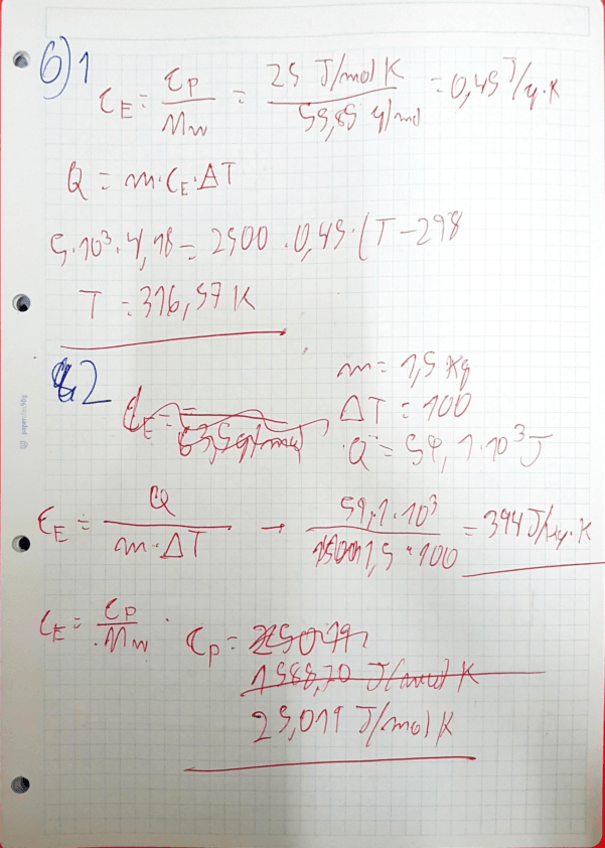 6)1
C_E = C_P / M_w = 25 J/mol K / 55,85 g/mol = 0,45 J/g·K
Q = m·C_E·ΔT
5·10³·4,18 = 2500·0,45·(T-298
T = 316,57 K
6.2
m = 1,5 Kg
ΔT = 100
Q = 59,1·10³ J
C_E = Q / m·ΔT → 59,1·10³ / 1,5·100 = 394 J/kg·K
C_E = C_P / M_w · C_P =
1588,70 J/mol K
25,019 J/mol K